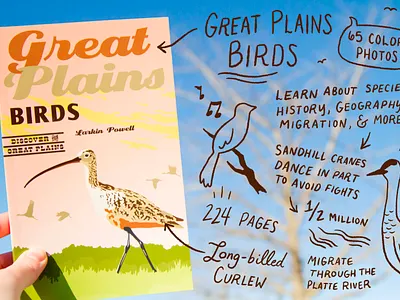 Great
Plains
BIRDS
Larkin Powell
DISCOVER THE
GREAT PLAINS
GREAT PLAINS
BIRDS
65 COLOR
PHOTOS
LEARN ABOUT SPECIES
HISTORY, GEOGRAPHY,
MIGRATION, & MORE
SANDHILL CRANES
DANCE IN PART
TO AVOID FIGHTS
224 PAGES
1/2 MILLION
Long-billed
CURLEW
MIGRATE
THROUGH THE
PLATTE RIVER